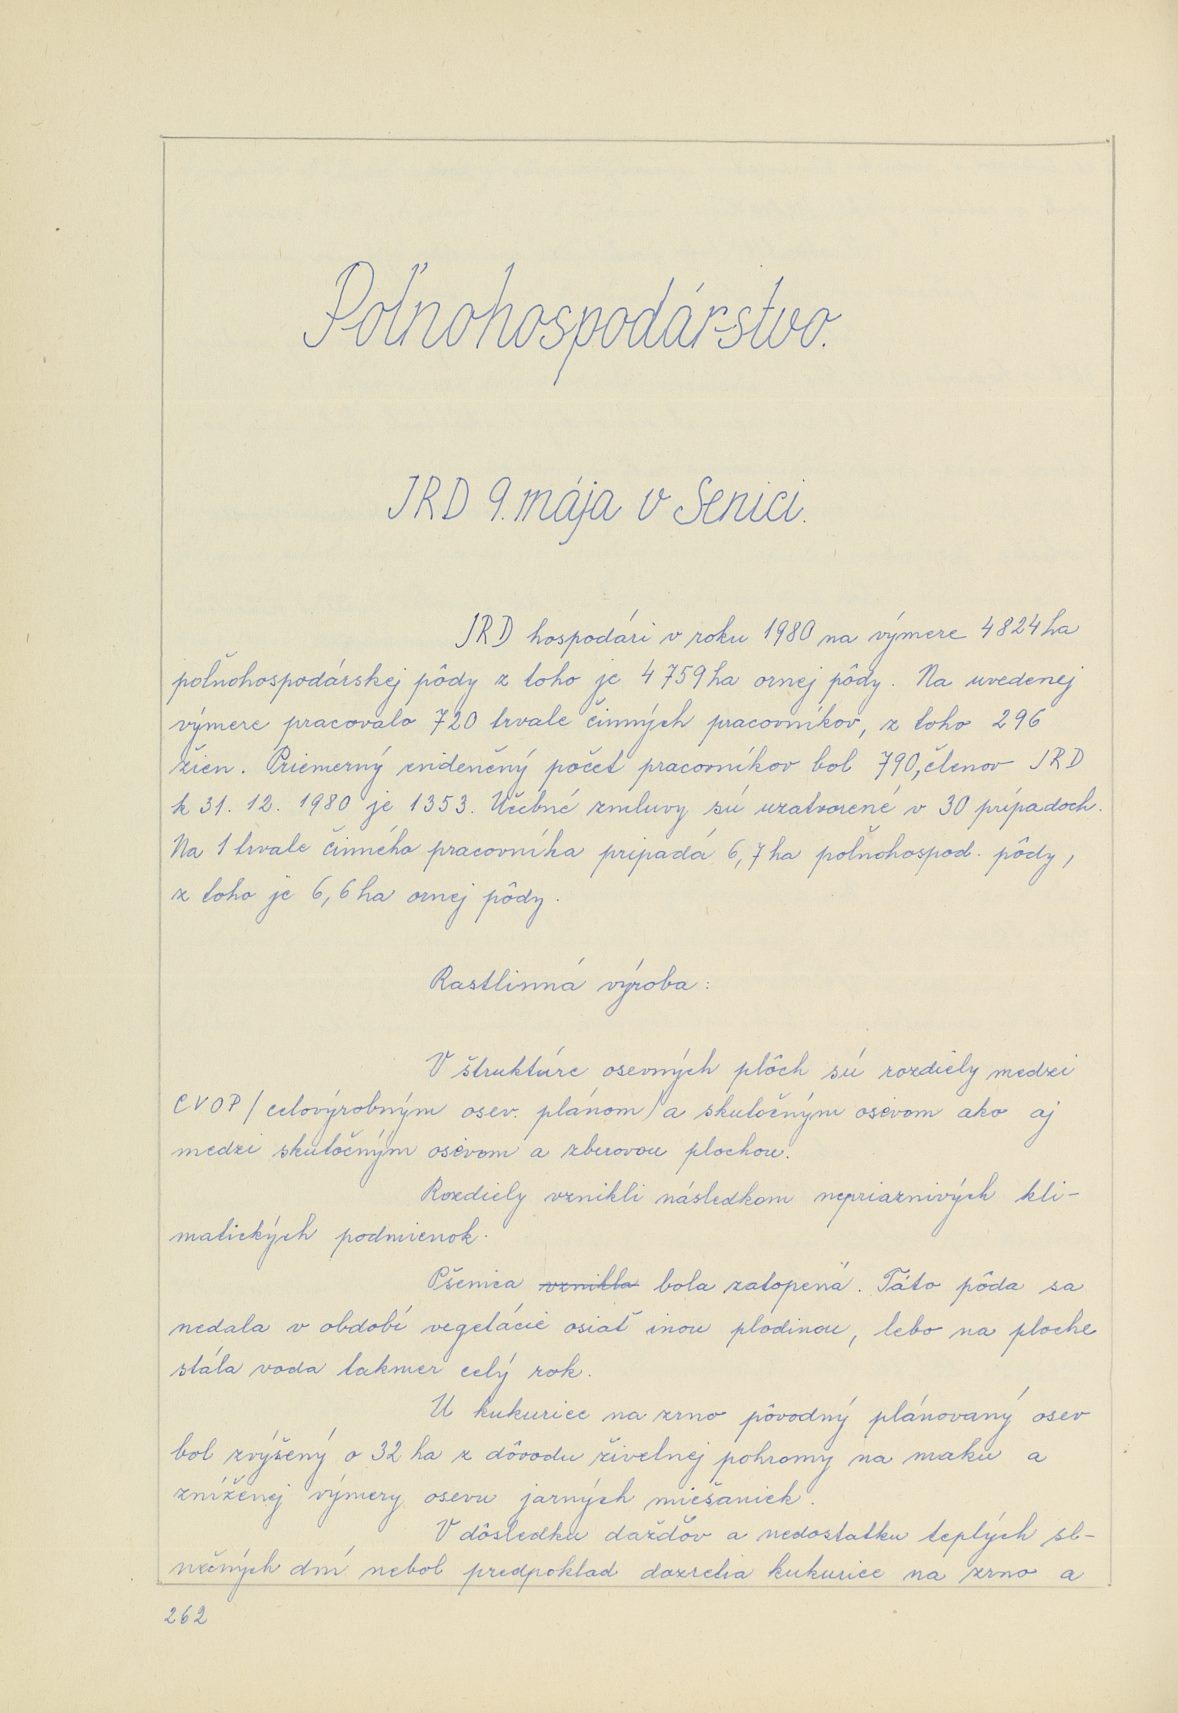 Poľnohospodárstvo.
JRD 9. mája v Senici.
JRD hospodári v roku 1980 na výmere 4824 ha
poľnohospodárskej pôdy z toho je 4759 ha ornej pôdy. Na uvedenej
výmere pracovalo 720 trvale činných pracovníkov, z toho 296
žien. Priemerný evidenčný počet pracovníkov bol 790, členov JRD
k 31. 12. 1980 je 1353. Učebné zmluvy sú uzatvorené v 30 prípadoch.
Na 1 trvale činného pracovníka pripadá 6,7 ha poľnohospod. pôdy,
z toho je 6,6 ha ornej pôdy.
Rastlinná výroba:
V štruktúre osevných plôch sú rozdiely medzi
CVOP /celovýrobným osev. plánom/ a skutočným osevom ako aj
medzi skutočným osevom a zberovou plochou.
Rozdiely vznikli následkom nepriaznivých kli-
matických podmienok.
Pšenica vznikla bola zatopená. Táto pôda sa
nedala v období vegetácie osiať inou plodinou, lebo na ploche
stála voda takmer celý rok.
U kukurice na zrno pôvodný plánovaný osev
bol zvýšený o 32 ha z dôvodu živelnej pohromy na maku a
zníženej výmery osevu jarných miešaniek.
V dôsledku dažďov a nedostatku teplých sl-
nečných dní nebol predpoklad dozretia kukurice na zrno a
262